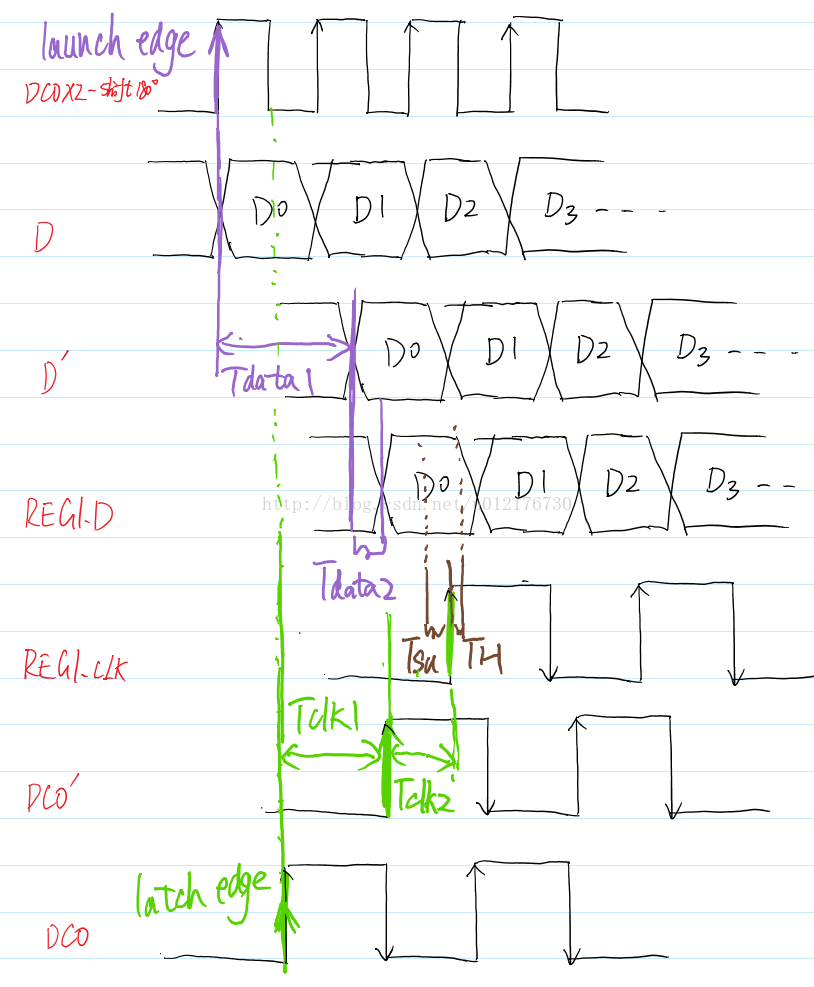 launch edge
DCOX2-shift 180°
D
D0 D1 D2 D3 - - -
D'
D0 D1 D2 D3 - - -
Tdata1
REG1.D
D0 D1 D2 D3 - -
http://blog.csdn.net/u012176730
Tdata2
REG1.CLK
Tsu TH
Tclk1
DCO'
Tclk2
latch edge
DCO